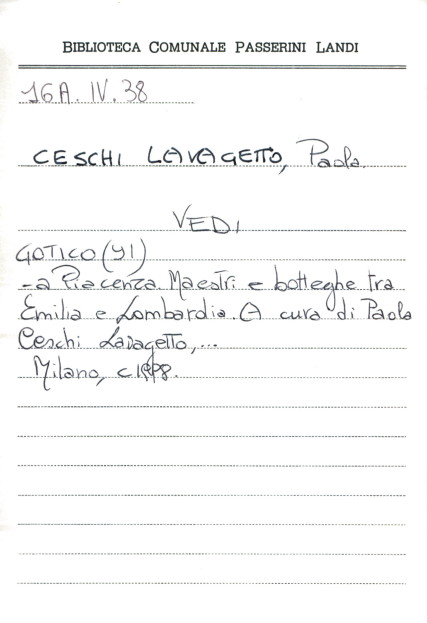 BIBLIOTECA COMUNALE PASSERINI LANDI
16A. IV. 38
CESCHI LAVAGETTO, Paola.
VEDI
GOTICO (YI)
- a Piacenza. Maestri e botteghe tra
Emilia e Lombardia. A cura di Paola
Ceschi Lavagetto,...
Milano, c1998.